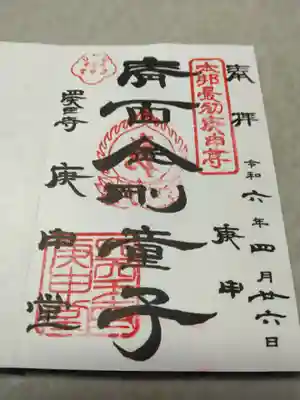 奉拝
令和六年四月廿六日
庚申
本邦最初庚申尊
青面金剛童子
四天王寺
庚申堂